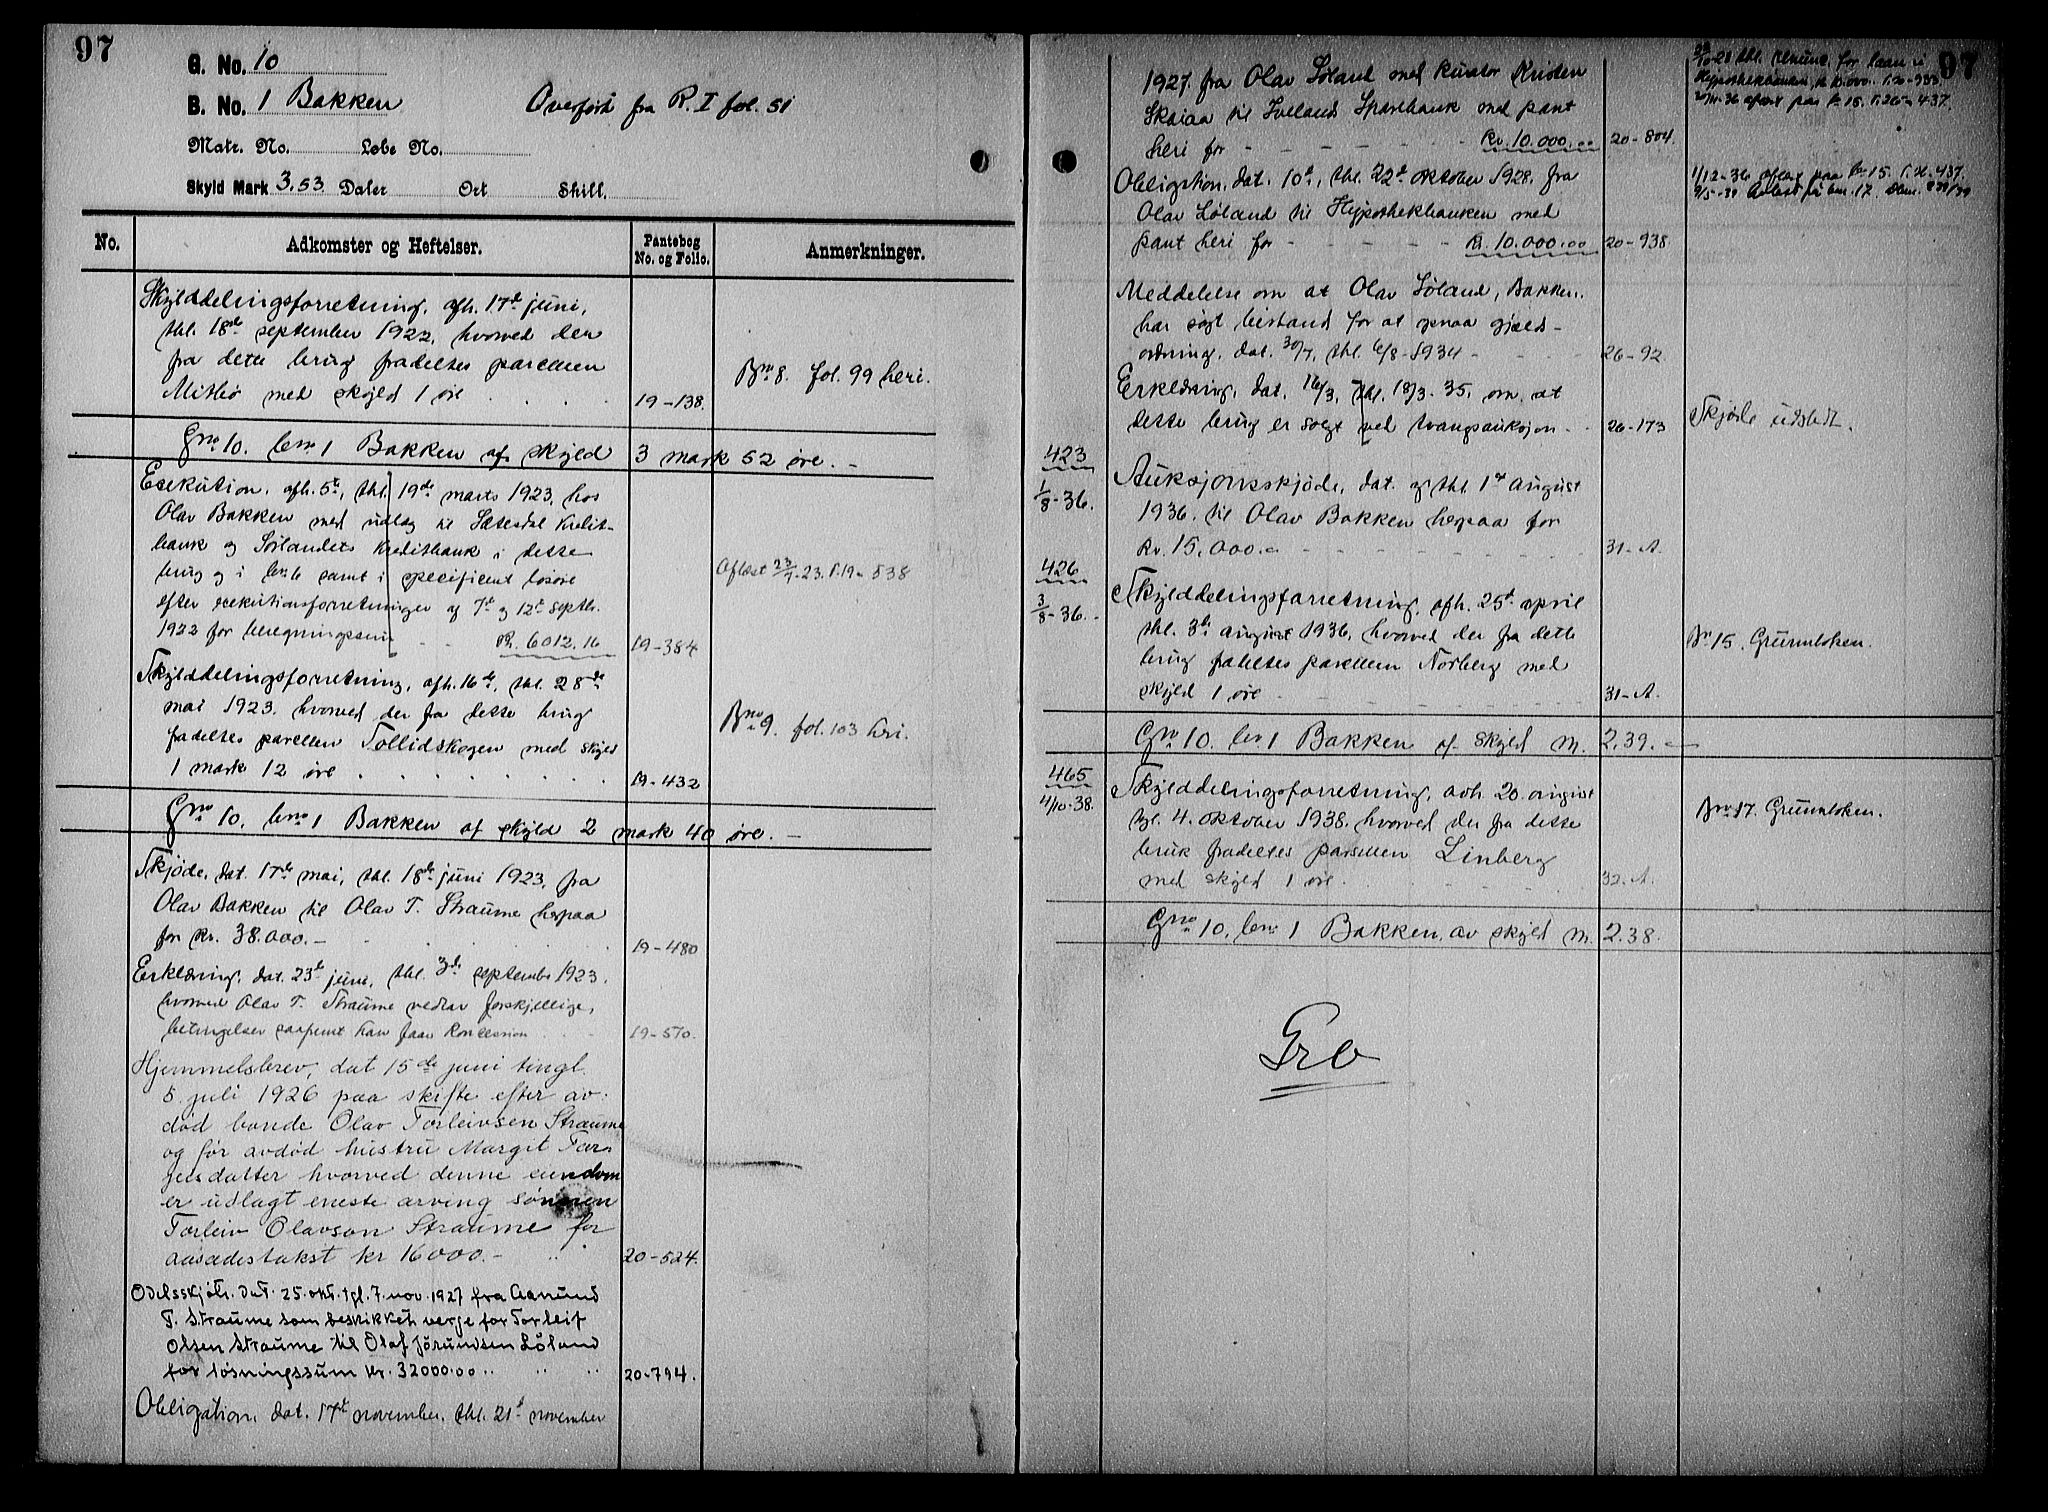 97
G. No. 10
B. No. 1 Bakken
Overført fra R. I fol. 51
Matr. No. Løbe No.
Skyld Mark 3.53 Daler Ort Skill.
No. Adkomster og Heftelser. Pantebog No. og Folio. Anmerkninger.
Skylddelingsforretning, afh. 17de juni,
thl. 18de september 1922, hvorved der
fra dette brug fradeltes parcellen
med skyld 1 øre 19-138.
Bno 8. fol. 99 heri.
Gno 10. bno 1 Bakken af skyld 3 mark 52 øre. -
Exekution, afh. 5te, thl. 19de marts 1923, hos
Olav Bakken med udlæg til Sætesdal Kredit-
bank og Sørlandets Kreditbank i dette
brug og i bno 6 samt i specificert løsøre
efter exekutionsforretninger af 7de og 12te septbr.
1922 for beregningssum Kr. 6012.16 19-384
Aflæst 23/7-23. P. 19-538
Skylddelingsforretning, afh. 16de, thl. 28de
mai 1923, hvorved der fra dette brug
fradeltes parcellen Tollidskogen med skyld
1 mark 12 øre 19-432
Bno 9. fol. 103 heri.
Gno 10. bno 1 Bakken af skyld 2 mark 40 øre. -
Skjøde, dat. 17de mai, thl. 18de juni 1923, fra
Olav Bakken til Olav T. Straume herpaa
for Kr. 38.000.- 19-480
Erklæring, dat. 23de juni, thl. 3de september 1923.
hvorved Olav T. Straume vedtar forskjellige
betingelser saafremt han faar Koncession 19-570.
Hjemmelsbrev, dat 15de juni tingl.
5. juli 1926 paa skifte efter av-
död bonde Olav Torleivsen Straume
og før avdöd hustru Margit Tar-
jeisdatter hvorved denne eiendom
er udlagt eneste arving sönnen
Torleiv Olavson Straume for
aasædestakst kr 16000.- 20-524.
Odelsskjöte. Dat. 25. okt. tgl. 7. nov. 1927 fra Aanund
T. Straume som beskikket verge for Torleif
Olsen Straume til Olaf Jörundsen Löland
for løsningssum kr. 32000.00 20-794.
Obligation, dat. 17de november, thl. 21de november
97
1927. fra Olav Løland med kurator Kristen
Skaiaa til Iveland Sparebank med pant
heri for Kr. 10.000.00 20-804.
Obligation, dat. 10de, thl. 22de oktober 1928, fra
Olav Løland til Hypothekbanken med
pant heri for Kr. 10.000.00 20-938.
1/12-36 aflæst paa bno 15. P. 26-437.
Meddelelse om at Olav Løland, Bakken,
har søgt bistand for at opnaa gjælds-
ordning, dat. 30/7, thl. 6/8-1934 26-92
Erklæring, dat. 16/3, thl. 18/3. 35. om at
dette brug er solgt ved tvangsauksjon 26-173
Skjøde udstedt.
423
1/8-36.
Auksjonsskjøde, dat. og thl. 1ste august
1936. til Olav Bakken herpaa for
Kr. 15.000.- 31-A.
426
3/8-36.
Skylddelingsforretning, afh. 25de april
thl. 3de august 1936, hvorved der fra dette
brug fradeltes parcellen Norberg med
skyld 1 øre 31-A.
Bno 15. Grunnboken.
Gno 10. bno 1 Bakken af skyld m. 2.39. -
465
4/10-38.
Skylddelingsforretning, avh. 20. august
tgl. 4. oktober 1938. hvorved der fra dette
bruk fradeltes parsellen Linberg
med skyld 1 øre. 32. A.
Bno 17. Grunnboken.
Gno 10. bno 1 Bakken, av skyld m. 2.38.